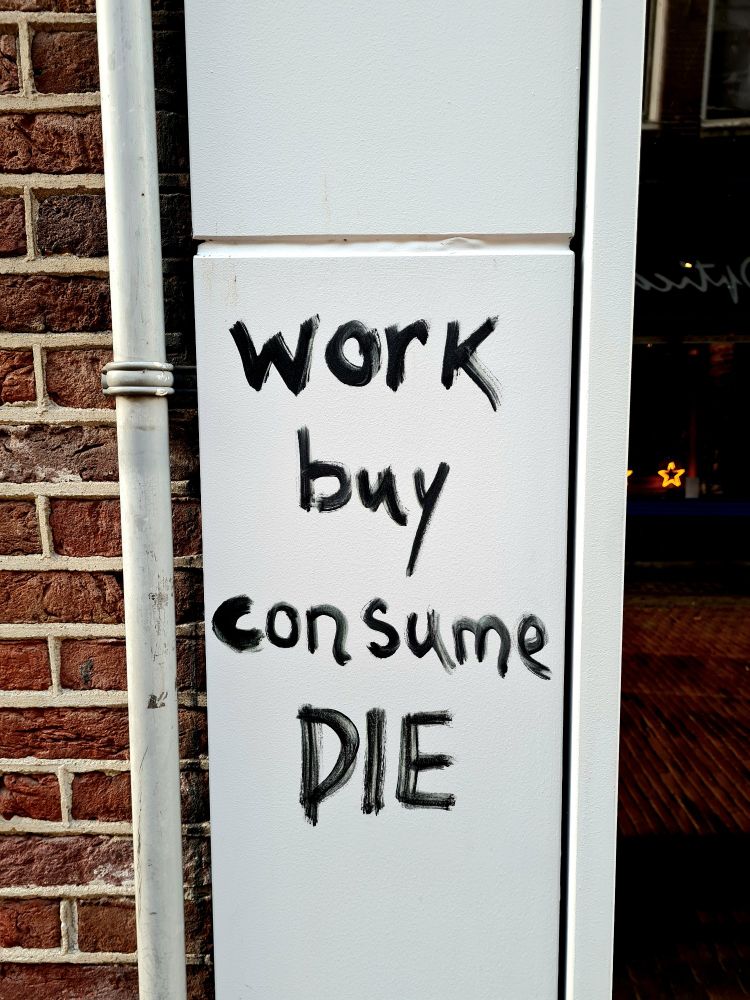 work
buy
consume
DIE
Optics